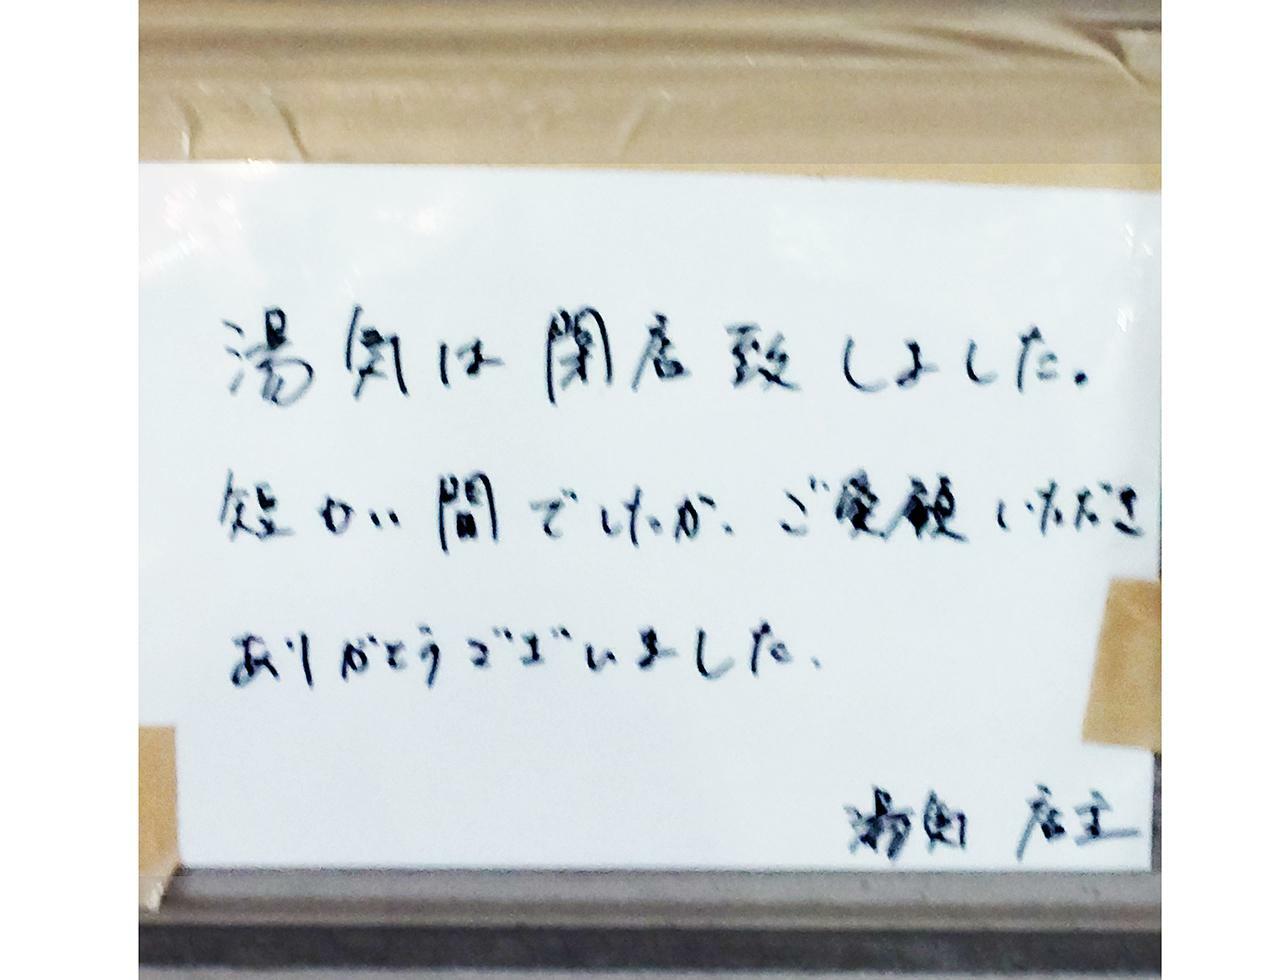 湯は閉店致しました。
短かい間でしたが、ご愛顧いただき
ありがとうございました。
湯 店主